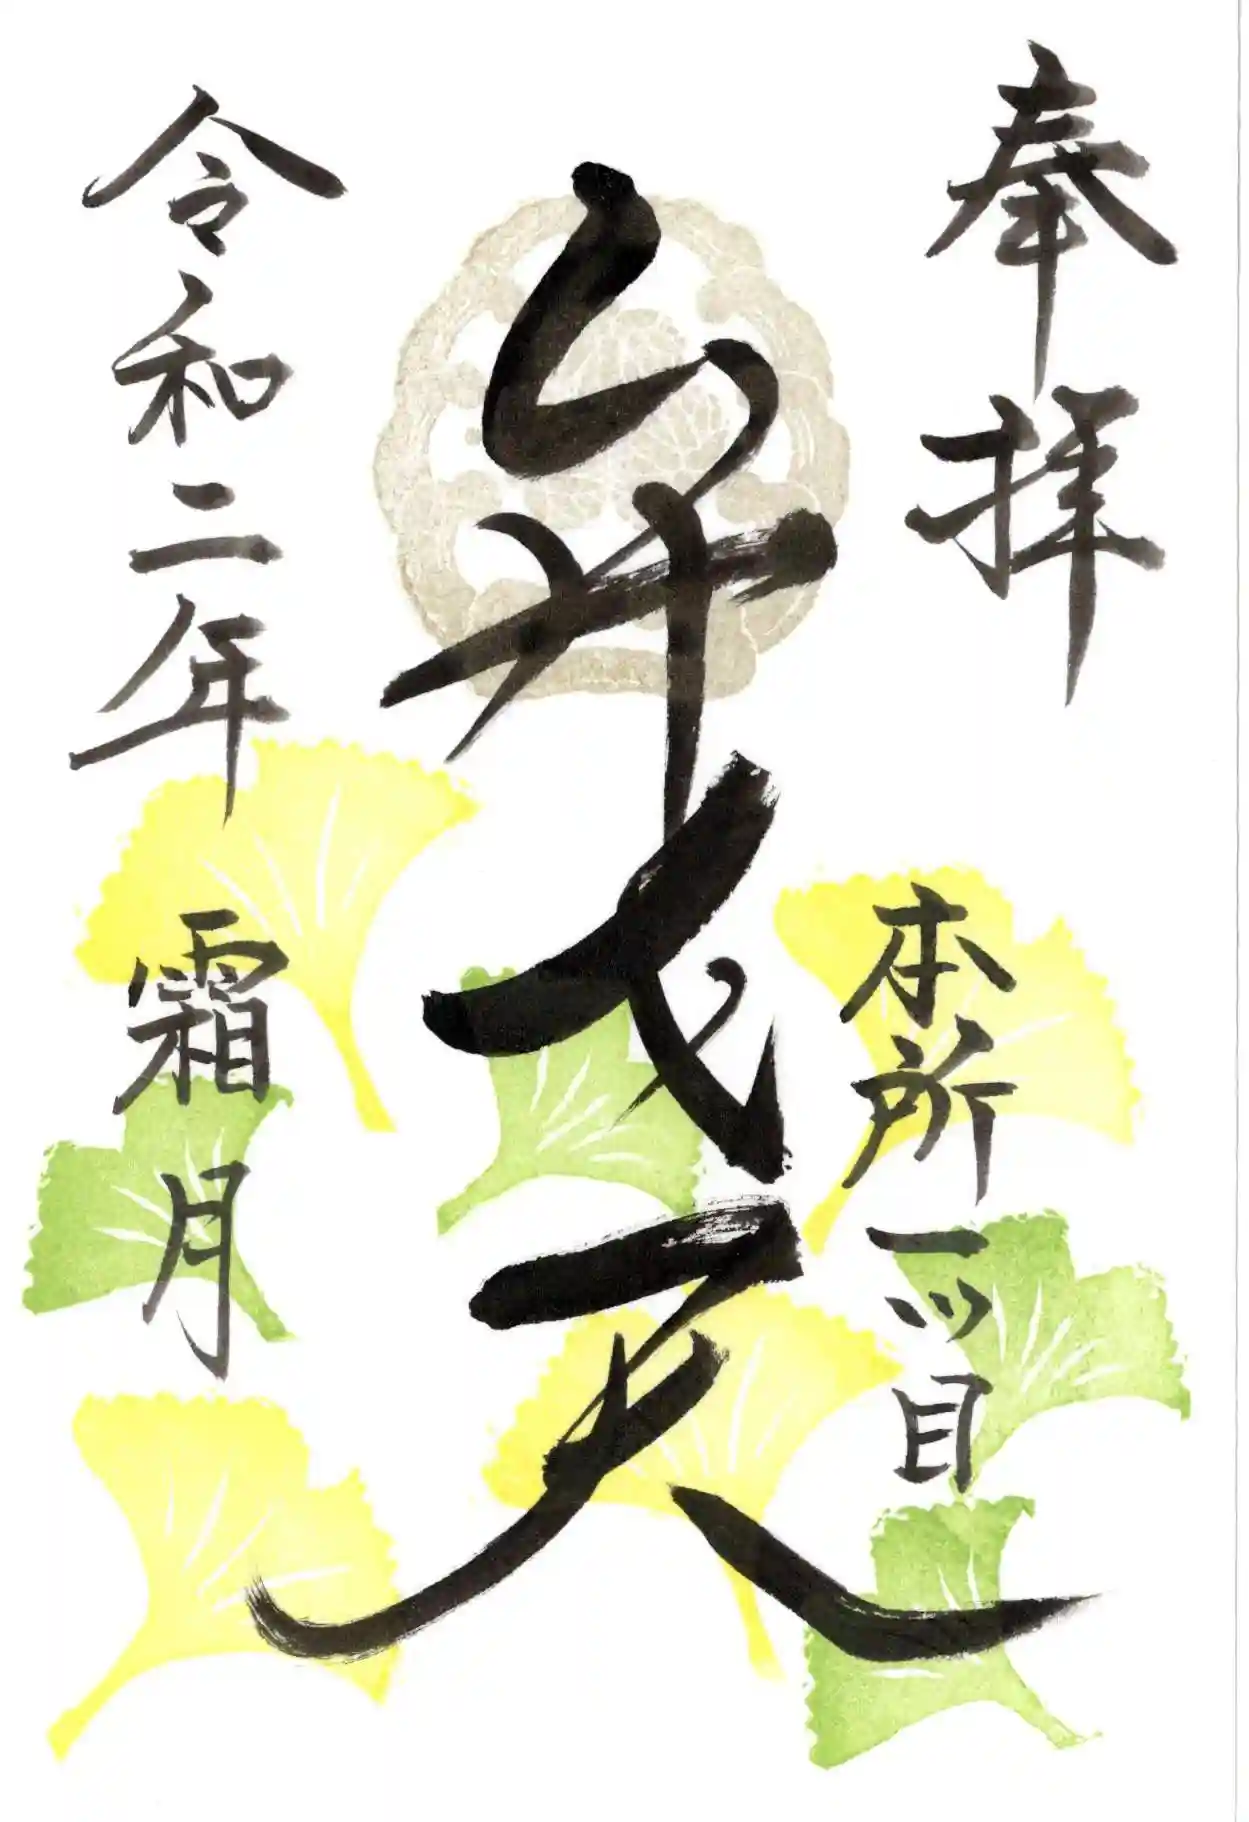 奉拝
本所一ツ目
弁天
令和二年
霜月